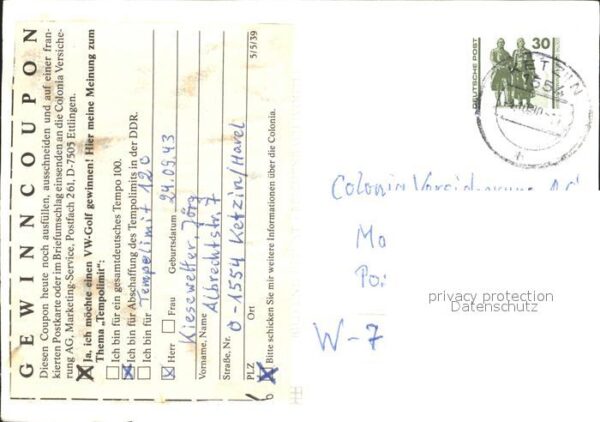 GEWINNCOUPON
Diesen Coupon heute noch ausfüllen, ausschneiden und auf einer fran-
kierten Postkarte oder im Briefumschlag einsenden an die Colonia Versiche-
rung AG, Marketing-Service, Postfach 261, D-7505 Ettlingen.
Ja, ich möchte einen VW-Golf gewinnen! Hier meine Meinung zum
Thema „Tempolimit“:
Ich bin für ein gesamtdeutsches Tempo 100.
Ich bin für Abschaffung des Tempolimits in der DDR.
Ich bin für Tempolimit 120
Herr Frau Geburtsdatum 24.09.43
Kiesewetter, Jörg
Vorname, Name
Albrechtstr. 7
Straße, Nr.
O-1554 Ketzin/Havel
PLZ Ort
Bitte schicken Sie mir weitere Informationen über die Colonia.
5/5/39
DEUTSCHE POST
30
KETZIN
1554
Colonia Versicherung AG
Ma
Po
W-7
privacy protection
Datenschutz